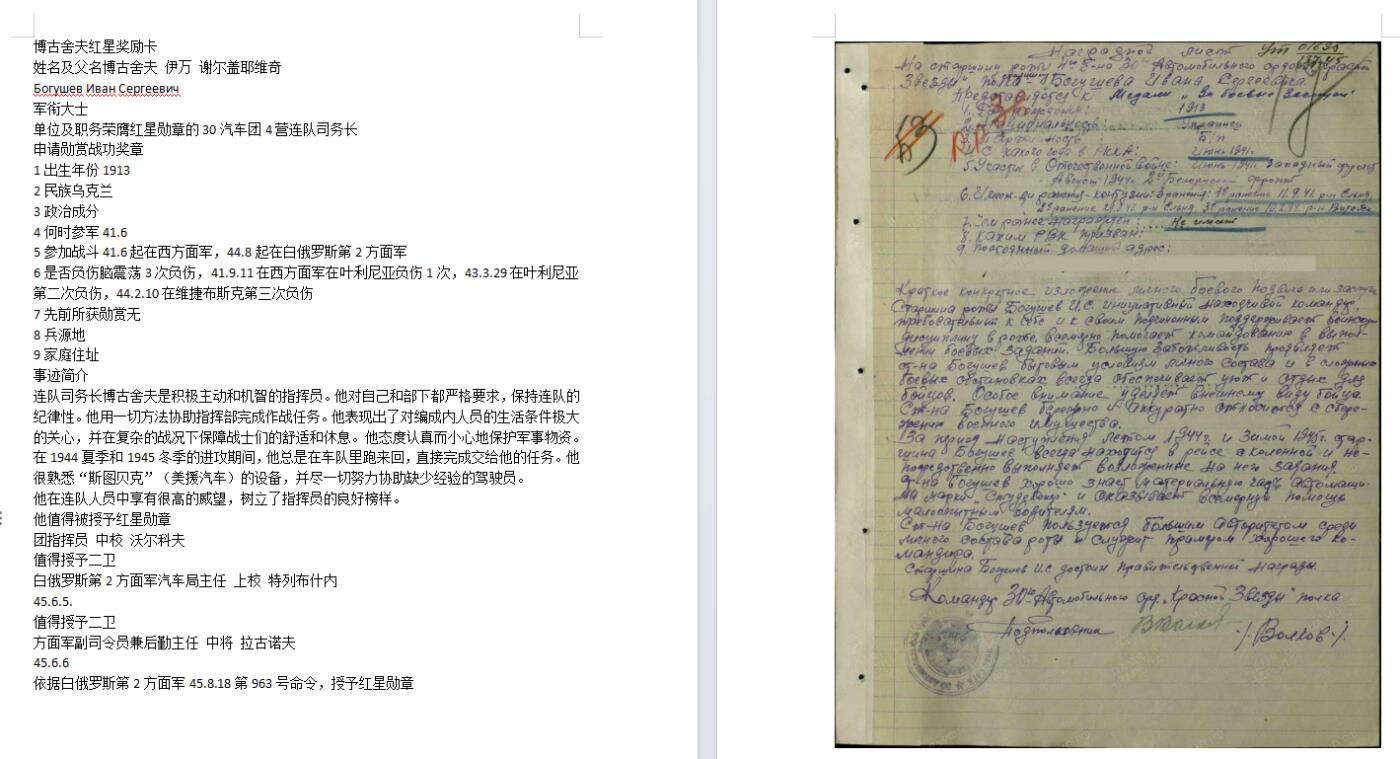 博古舍夫红星奖励卡
姓名及父名博古舍夫 伊万 谢尔盖耶维奇
Богушев Иван Сергеевич
军衔大士
单位及职务荣膺红星勋章的 30 汽车团 4 营连队司务长
申请勋赏战功奖章
1 出生年份 1913
2 民族乌克兰
3 政治成分
4 何时参军 41.6
5 参加战斗 41.6 起在西方面军，44.8 起在白俄罗斯第 2 方面军
6 是否负伤脑震荡 3 次负伤，41.9.11 在西方面军在叶利尼亚负伤 1 次，43.3.29 在叶利尼亚
第二次负伤，44.2.10 在维捷布斯克第三次负伤
7 先前所获勋赏无
8 兵源地
9 家庭住址
事迹简介
连队司务长博古舍夫是积极主动和机智的指挥员。他对自己和部下都严格要求，保持连队的
纪律性。他用一切方法协助指挥部完成作战任务。他表现出了对编成内人员的生活条件极大
的关心，并在复杂的战况下保障战士们的舒适和休息。他态度认真而小心地保护军事物资。
在 1944 夏季和 1945 冬季的进攻期间，他总是在车队里跑来回，直接完成交给他的任务。他
很熟悉“斯图贝克”（美援汽车）的设备，并尽一切努力协助缺少经验的驾驶员。
他在连队人员中享有很高的威望，树立了指挥员的良好榜样。
他值得被授予红星勋章
团指挥员 中校 沃尔科夫
值得授予二卫
白俄罗斯第 2 方面军汽车局主任 上校 特列布什内
45.6.5.
值得授予二卫
方面军副司令员兼后勤主任 中将 拉古诺夫
45.6.6
依据白俄罗斯第 2 方面军 45.8.18 第 963 号命令，授予红星勋章
Наградной лист
На старшину роты 30 Автомобильного
Звезды" полка Богушева Ивана Сергеевича
Представляется к Медали "За боевые заслуги"
1913
Украинец
Б/п
4. С какого года в РККА: Июнь 1941г.
5. Участие в Отечественной войне: Июнь 1941г. Западный фронт
Август 1944г. 2й Белорусский фронт
Не имеет
8. Каким РВК призван:
9. Постоянный домашний адрес:
Краткое конкретное изложение личного боевого подвига или
Старшина роты Богушев И.С. инициативный находчивый командир,
требовательный к себе и к своим подчиненным поддерживает воинскую
дисциплину в роте, всемерно помогает командованию в выпол-
нении боевых заданий. Большую заботливость проявляет
ст-на Богушев бытовым условиям личного состава и в сложных
боевых обстановках всегда обеспечивает уют и отдых для
бойцов. Особое внимание уделяет внешнему виду бойца.
Ст-на Богушев бережно и аккуратно относится к сбере-
жению военного имущества.
За период наступления летом 1944г. и зимой 1945г. стар-
шина Богушев всегда находится в рейсе с колонной и не-
посредственно выполняет возложенные на него задания.
Ст-на Богушев хорошо знает материальную часть автомаши-
ны марки "Студебекер" и оказывает всемерную помощь
малоопытным водителям.
Ст-на Богушев пользуется большим авторитетом среди
личного состава роты и служит примером хорошего ко-
мандира.
Старшина Богушев И.С достоин правительственной награды.
Командир 30го Автомобильного орд. "Красной Звезды" полка
Подполковник /Волков/.